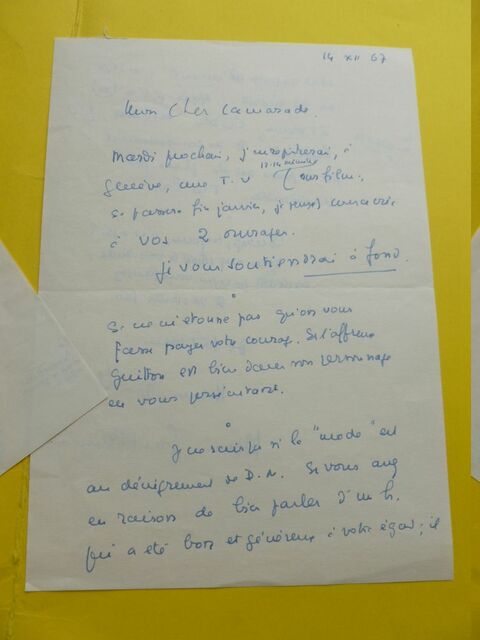 14 XII 67
Mon Cher Camarade.
Mardi prochain, j'enregistrerai, à
Genève, une T.V sur film.
12-14 minutes
passera fin janvier, je serai consacré
à vos 2 ouvrages.
Je vous soutiendrai à fond.
Il ne m'étonne pas qu'on vous
fasse payer votre courage. Et l'affreux
Guitton est bien dans son personnage
en vous persécutant.
Je ne sais pas si la "mode" est
au dénigrement de D.N. Si vous avez
eu raison de bien parler d'un h.
qui a été bon et généreux à votre égard ; il